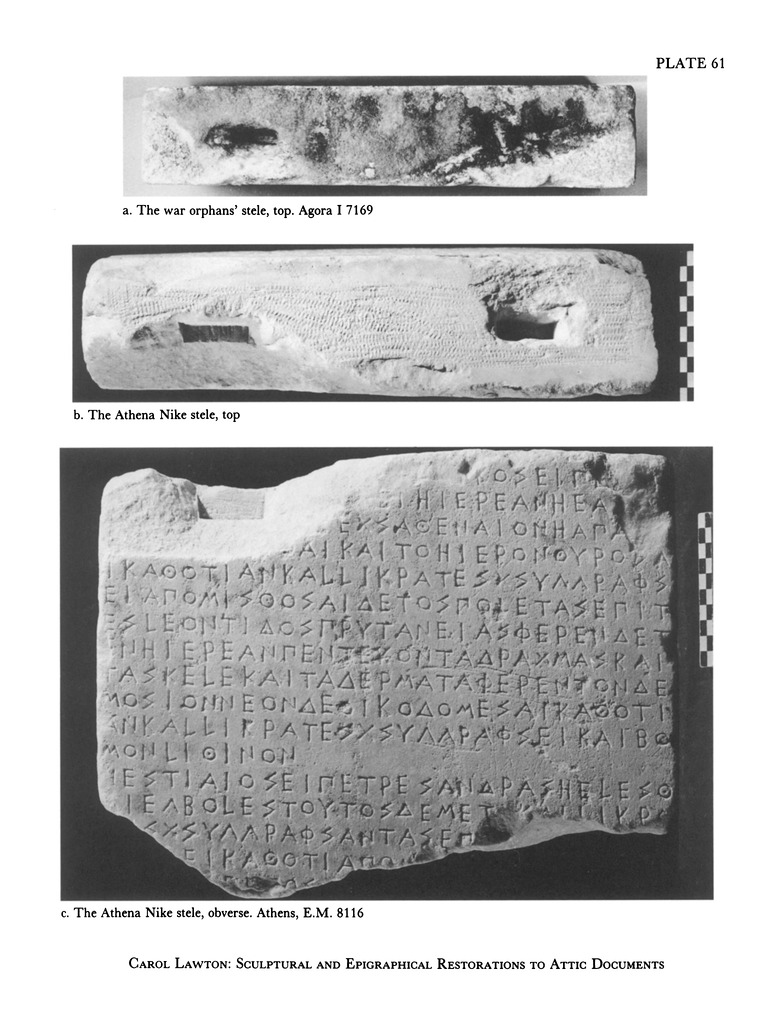 PLATE 61
a. The war orphans' stele, top. Agora I 7169
b. The Athena Nike stele, top
ΚΟΣΕΙΠ
ΕΙΗΙΕΡΕΑΝΗΕΑ
ΕΧΣΑΘΕΝΑΙΟΝΗΑΠΑ
ΑΙΚΑΙΤΟΗΙΕΡΟΝΘΥΡΟΣΑ
ΙΚΑΘΟΤΙΑΝΚΑΛΛΙΚΡΑΤΕΣΧΣΥΓΓΡΑΦΣ
ΕΙΑΠΟΜΙΣΘΟΣΑΙΔΕΤΟΣΠΟΛΕΤΑΣΕΠΙΤ
ΕΣΛΕΟΝΤΙΔΟΣΠΡΥΤΑΝΕΙΑΣΦΕΡΕΝΔΕΤ
ΕΝΗΙΕΡΕΑΝΠΕΝΤΕΚΟΝΤΑΔΡΑΧΜΑΣΚΑΙ
ΤΑΣΚΕΛΕΚΑΙΤΑΔΕΡΜΑΤΑΦΕΡΕΝΤΟΝΔΕ
ΜΟΣΙΟΝΝΕΟΝΔΕΟΙΚΟΔΟΜΕΣΑΙΚΑΘΟΤΙ
ΑΝΚΑΛΛΙΚΡΑΤΕΣΧΣΥΓΓΡΑΦΣΕΙΚΑΙΒΟ
ΜΟΝΛΙΘΙΝΟΝ
ΗΕΣΤΙΑΙΟΣΕΙΠΕΤΡΕΣΑΝΔΡΑΣΗΕΛΕΣΘ
ΙΕΓΒΟΛΕΣΤΟΥΤΟΣΔΕΜΕΤ ΚΑΛΛΙΚΡ
ΣΧΣΥΓΓΡΑΦΣΑΝΤΑΣΕΠ
ΕΙΚΑΘΟΤΙΑΠΟ
c. The Athena Nike stele, obverse. Athens, E.M. 8116
CAROL LAWTON: SCULPTURAL AND EPIGRAPHICAL RESTORATIONS TO ATTIC DOCUMENTS